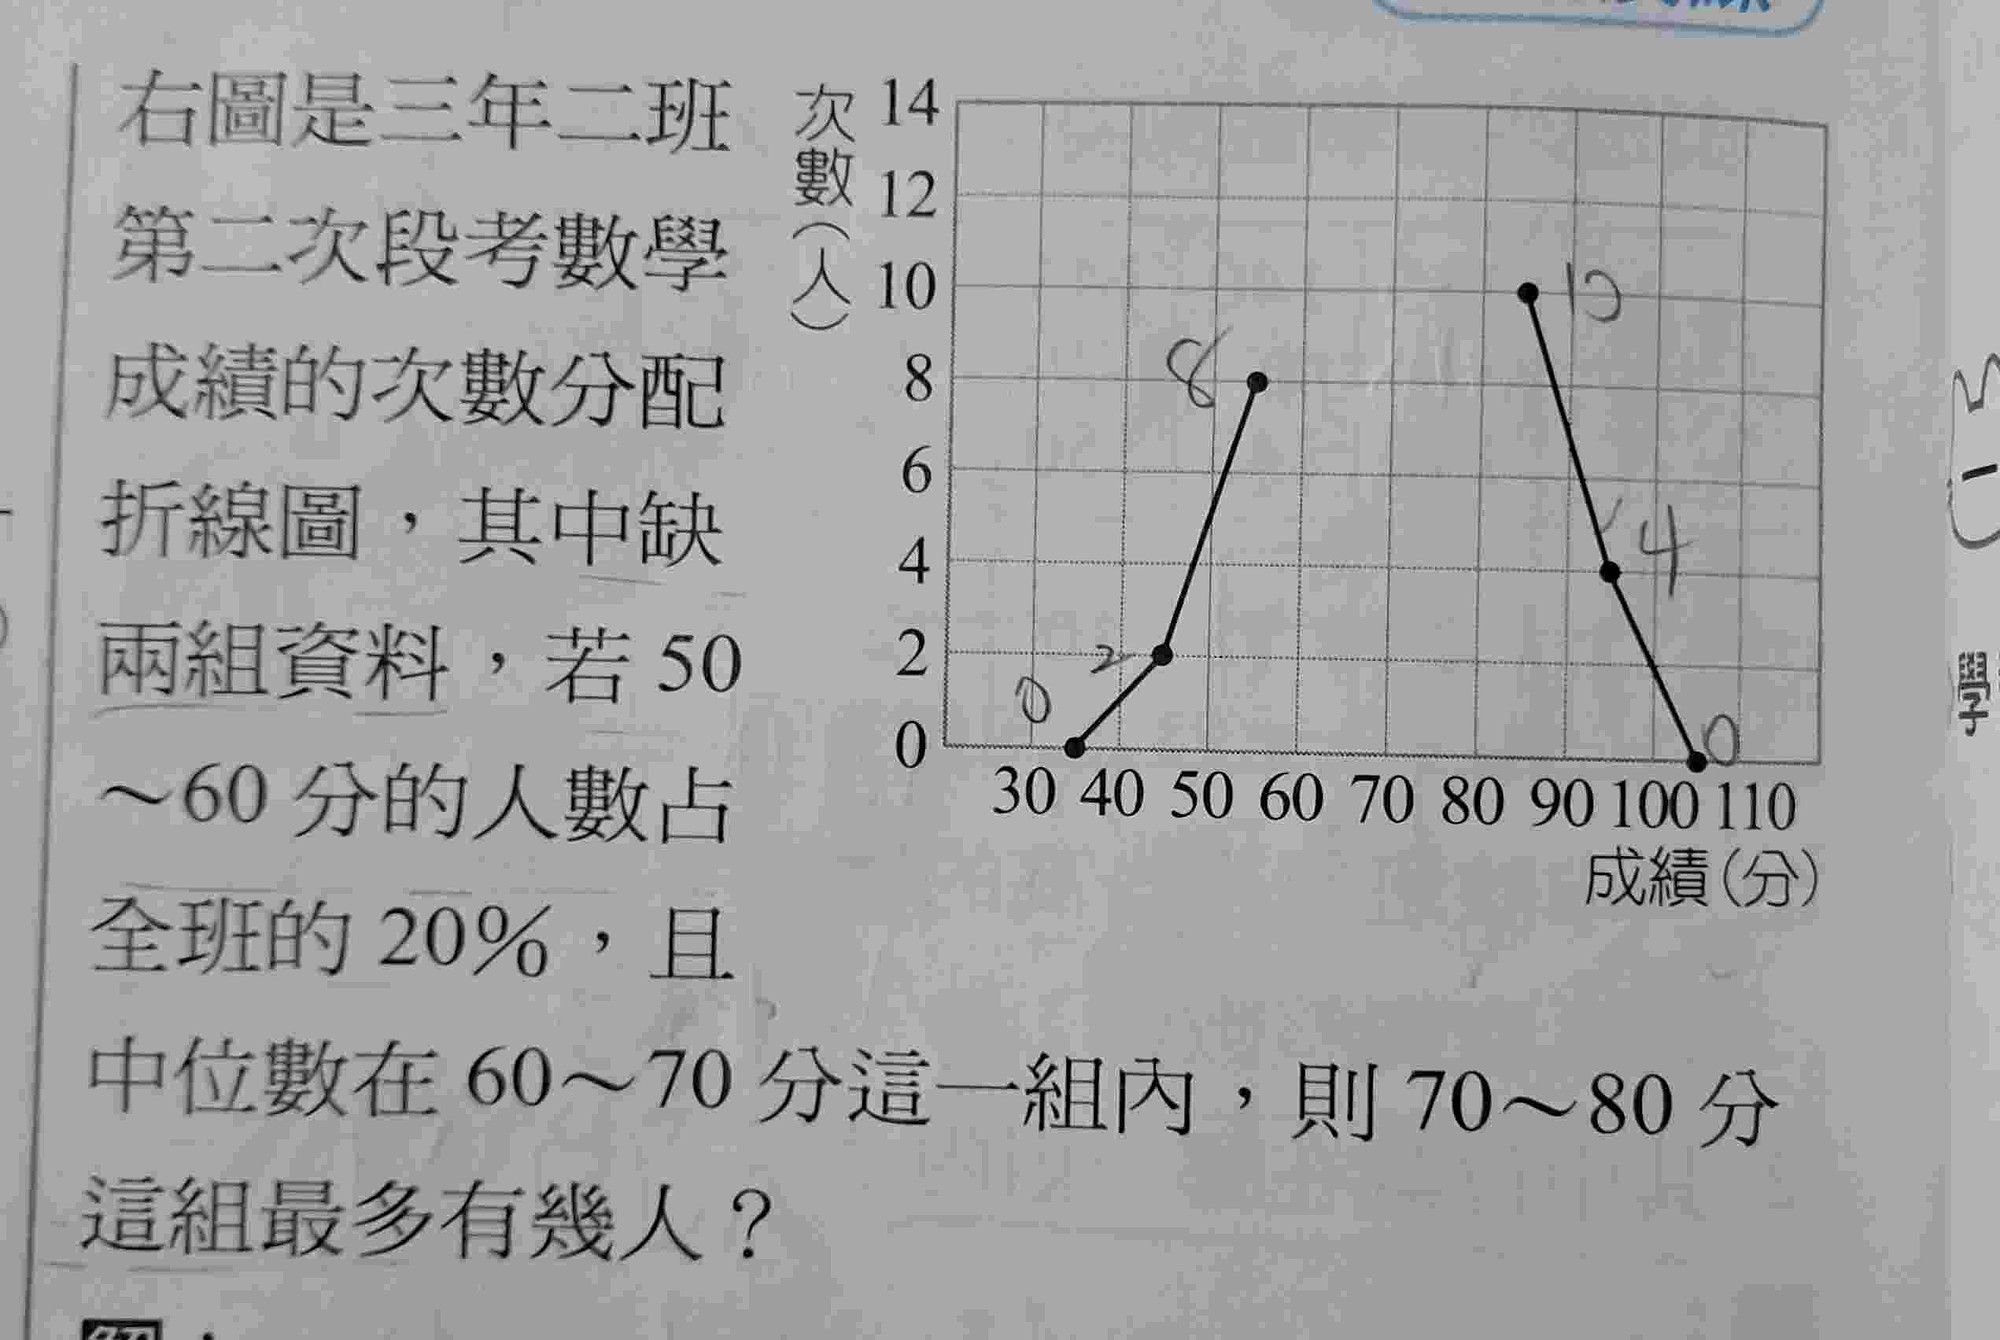 右圖是三年二班
第二次段考數學
成績的次數分配
折線圖,其中缺
兩組資料,若 50
~60 分的人數占
全班的 20%,且
中位數在 60~70 分這一組內,則 70~80 分
這組最多有幾人?
次數(人)
14
12
10
8
6
4
2
0
30 40 50 60 70 80 90 100 110
成績(分)
10
8
4
2
0
0
學